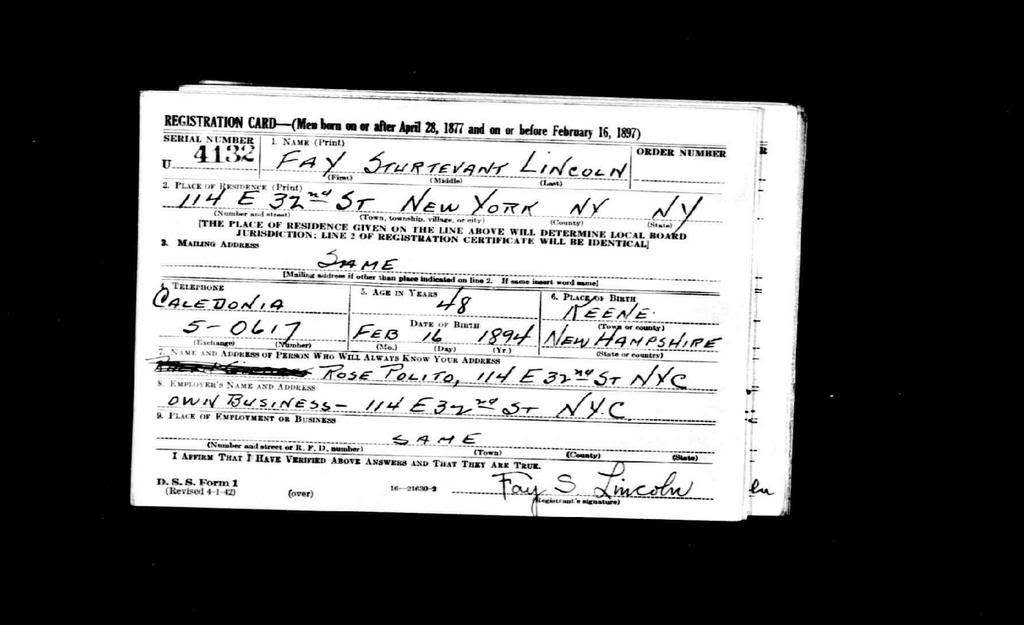 REGISTRATION CARD—(Men born on or after April 28, 1877 and on or before February 16, 1897)
SERIAL NUMBER
1. NAME (Print)
ORDER NUMBER
U 4132
FAY STURTEVANT LINCOLN
(First) (Middle) (Last)
2. PLACE OF RESIDENCE (Print)
114 E 32nd ST NEW YORK NY NY
(Number and street) (Town, township, village, or city) (County) (State)
[THE PLACE OF RESIDENCE GIVEN ON THE LINE ABOVE WILL DETERMINE LOCAL BOARD
JURISDICTION; LINE 2 OF REGISTRATION CERTIFICATE WILL BE IDENTICAL]
3. MAILING ADDRESS
SAME
[Mailing address if other than place indicated on line 2. If same insert word same]
4. TELEPHONE
5. AGE IN YEARS
6. PLACE OF BIRTH
CALEDONIA
48
KEENE
DATE OF BIRTH
(Town or county)
5-0617
FEB 16 1894
NEW HAMPSHIRE
(Exchange) (Number)
(Mo.) (Day) (Yr.)
(State or country)
7. NAME AND ADDRESS OF PERSON WHO WILL ALWAYS KNOW YOUR ADDRESS
ROSE POLITO, 114 E 32nd ST NYC
8. EMPLOYER'S NAME AND ADDRESS
OWN BUSINESS— 114 E 32nd ST NYC
9. PLACE OF EMPLOYMENT OR BUSINESS
SAME
(Number and street or R. F. D. number) (Town) (County) (State)
I AFFIRM THAT I HAVE VERIFIED ABOVE ANSWERS AND THAT THEY ARE TRUE.
D. S. S. Form 1
(Revised 4-1-42)
(over)
16—21630-2
Fay S. Lincoln
(Registrant's signature)